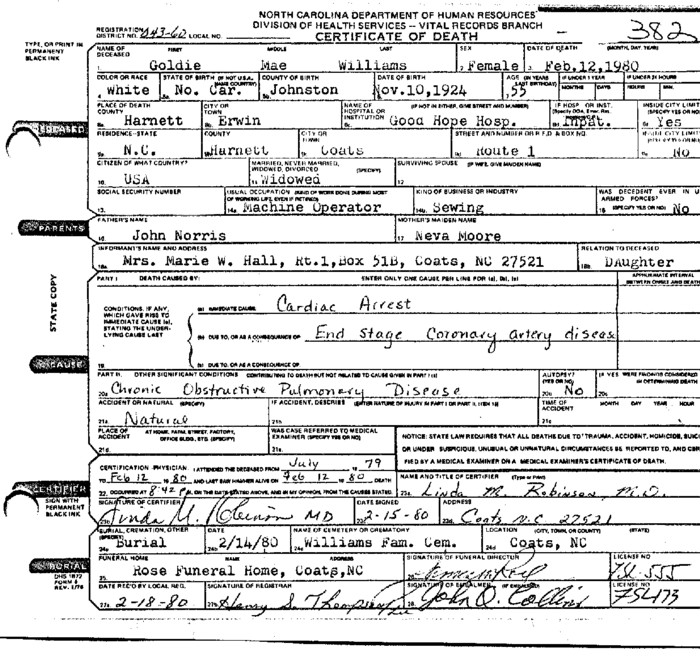 NORTH CAROLINA DEPARTMENT OF HUMAN RESOURCES
DIVISION OF HEALTH SERVICES – VITAL RECORDS BRANCH
CERTIFICATE OF DEATH
382
REGISTRATION DISTRICT NO. LOCAL NO.
TYPE, OR PRINT IN PERMANENT BLACK INK
NAME OF DECEASED FIRST MIDDLE LAST SEX DATE OF DEATH (MONTH, DAY, YEAR)
1. Goldie Mae Williams 2. Female Feb,12,1980
COLOR OR RACE STATE OF BIRTH COUNTY OF BIRTH DATE OF BIRTH AGE IF UNDER 1 YEAR IF UNDER 24 HOURS
White No. Car. Johnston Nov.10,1924 55 MONTHS DAYS HOURS MIN.
PLACE OF DEATH COUNTY CITY OR TOWN NAME OF HOSPITAL OR INSTITUTION (IF NOT IN EITHER, GIVE STREET AND NUMBER) IF HOSP. OR INST. INSIDE CITY LIMIT
Harnett Erwin Good Hope Hosp. Inpat. Yes
RESIDENCE-STATE COUNTY CITY OR TOWN STREET AND NUMBER OR R.F.D. & BOX NO. INSIDE CITY LIMIT
N.C. Harnett Coats Route 1 No
CITIZEN OF WHAT COUNTRY? MARRIED, NEVER MARRIED, WIDOWED, DIVORCED (SPECIFY) SURVIVING SPOUSE (IF WIFE, GIVE MAIDEN NAME)
10. USA 11. Widowed 12.
SOCIAL SECURITY NUMBER USUAL OCCUPATION (KIND OF WORK DONE DURING MOST OF WORKING LIFE, EVEN IF RETIRED) KIND OF BUSINESS OR INDUSTRY WAS DECEDENT EVER IN U ARMED FORCES? (SPECIFY YES OR NO)
13. 14a. Machine Operator 14b. Sewing 15. No
PARENTS
FATHER'S NAME MOTHER'S MAIDEN NAME
16. John Norris 17. Neva Moore
INFORMANT'S NAME AND ADDRESS RELATION TO DECEASED
18a. Mrs. Marie W. Hall, Rt.1,Box 51B, Coats, NC 27521 18b. Daughter
STATE COPY
PART I DEATH CAUSED BY: ENTER ONLY ONE CAUSE PER LINE FOR (a), (b), (c) APPROXIMATE INTERVAL BETWEEN ONSET AND DEATH
CONDITIONS, IF ANY, WHICH GAVE RISE TO IMMEDIATE CAUSE (a), STATING THE UNDERLYING CAUSE LAST
(a) IMMEDIATE CAUSE Cardiac Arrest
(b) DUE TO, OR AS A CONSEQUENCE OF End Stage Coronary artery diseas
19. (c) DUE TO, OR AS A CONSEQUENCE OF
CAUSE
PART II. OTHER SIGNIFICANT CONDITIONS CONTRIBUTING TO DEATH BUT NOT RELATED TO CAUSE GIVEN IN PART I (a) AUTOPSY? (YES OR NO) IF YES WERE FINDINGS CONSIDERED IN DETERMINING DEATH
20a. Chronic Obstructive Pulmonary Disease 20b. No 20c.
ACCIDENT OR NATURAL (SPECIFY) IF ACCIDENT, DESCRIBE (ENTER NATURE OF INJURY IN PART I OR PART II, ITEM 18) TIME OF ACCIDENT MONTH DAY YEAR HOUR
21a. Natural 21b. 21c.
PLACE OF ACCIDENT AT HOME, FARM, STREET, FACTORY, OFFICE BLDG., ETC. (SPECIFY) WAS CASE REFERRED TO MEDICAL EXAMINER (SPECIFY YES OR NO)
21d. 21e.
NOTICE: STATE LAW REQUIRES THAT ALL DEATHS DUE TO TRAUMA, ACCIDENT, HOMICIDE, SUICI
OR UNDER SUSPICIOUS, UNUSUAL OR UNNATURAL CIRCUMSTANCES BE REPORTED TO, AND CER
FIED BY A MEDICAL EXAMINER ON A MEDICAL EXAMINER'S CERTIFICATE OF DEATH.
CERTIFICATION PHYSICIAN I ATTENDED THE DECEASED FROM July 79
TO Feb 12 80 AND LAST SAW HIM/HER ALIVE ON Feb 12 80 DEATH
22. OCCURRED AT 8:42 P.M. ON THE DATE STATED ABOVE, AND IN MY OPINION, FROM THE CAUSES STATED
NAME AND TITLE OF CERTIFIER (Type or Print)
Linda M. Robinson, M.D.
CERTIFIER
SIGN WITH PERMANENT BLACK INK
SIGNATURE OF CERTIFIER DATE SIGNED ADDRESS
Linda M. Robinson MD 2-15-80 Coats, N.C. 27521
BURIAL, CREMATION, OTHER (SPECIFY) DATE NAME OF CEMETERY OR CREMATORY LOCATION (CITY, TOWN, OR COUNTY) (STATE)
Burial 2/14/80 Williams Fam. Cem. Coats, NC
BURIAL
DHS 1872
FORM 8
REV. 1/78
FUNERAL HOME NAME ADDRESS SIGNATURE OF FUNERAL DIRECTOR LICENSE NO
25. Rose Funeral Home, Coats,NC
DATE REC'D BY LOCAL REG. SIGNATURE OF REGISTRAR LICENSE NO
27a. 2-18-80 27b. Henry S. Thompson John O. Collins